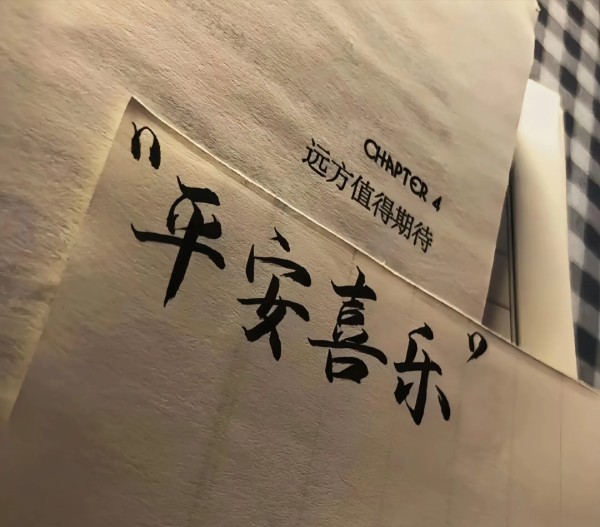 CHAPTER 4
远方值得期待
"平安喜乐"